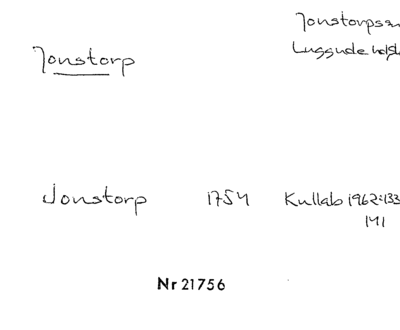 Jonstorpsn
Luggude
Jonstorp
Jonstorp 1754 Kullab 1962:133
141
Nr 21756